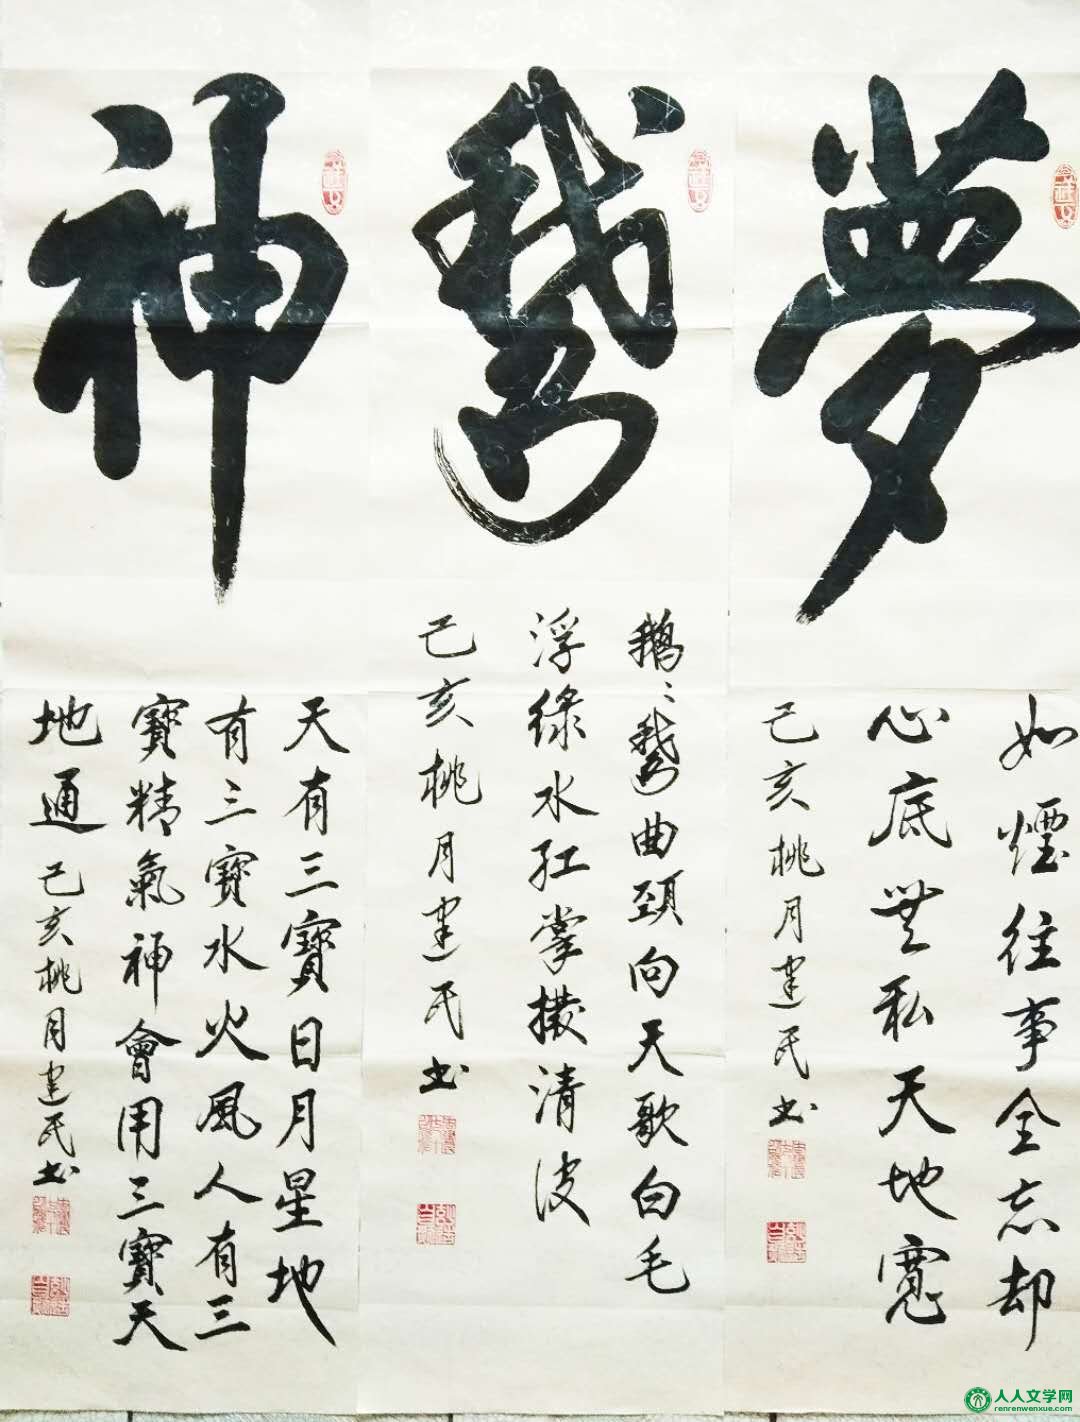 夢
如煙往事全忘却
心底無私天地寬
己亥桃月建民书
鵝
鵝〻鵞曲頚向天歌白毛
浮緑水紅掌撥清波
己亥桃月建民书
神
天有三寶日月星地
有三寶水火風人有三
寶精氣神會用三寶天
地通
己亥桃月建民书
人人文学网
renrenwenxue.com